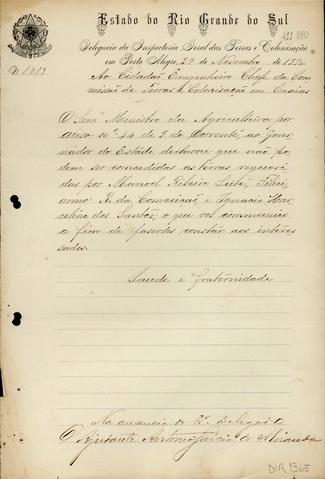 Estado do Rio Grande do Sul
Delegacia da Inspectoria Geral das Terras e Colonisação
em Porto Alegre, 29 de Novembro de 1890
Nº 1813
Ao Cidadão Engenheiro Chefe da Com
missão de Terras e Colonisação em Caxias
O Senr Ministro da Agricultura por
aviso nº 44 de 5 do Corrente, ao Gover
nador do Estado declarou que não po
dem ser concedidas as terras requeri
das por Manoel Ribeiro Leite, Felici
anno R. da Conceição e Ignacio Mar
celino dos Santos, o que vos communico
a fim de fazerdes constar aos interes
sados.
Saude e fraternidade
Na ausencia do Sr. Delegado
O Ajudante Antonio Garcia de Miranda
DIR 1365